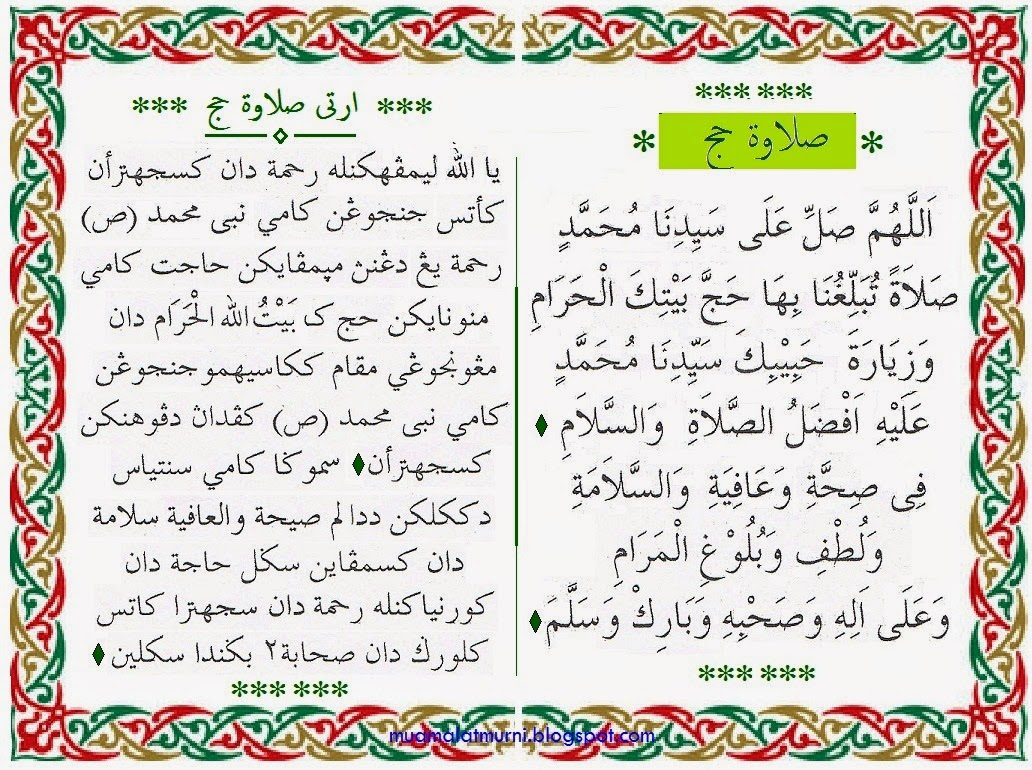 *** ***
* صلاوة حج *
اَللَّهُمَّ صَلِّ عَلَى سَيِدِنَا مُحَمَّدٍ
صَلاَةً تُبَلِّغُنَا بِهَا حَجَّ بَيْتِكَ الْحَرَامِ
وَزِيَارَةَ حَبِيْبِكَ سَيِّدِنَا مُحَمَّدٍ
عَلَيْهِ اَفْضَلُ الصَّلاَةِ وَالسَّلاَمِ
فِى صِحَّةِ وَعَافِيَةِ وَالسَّلاَمَةِ
وَلُطْفِ وَبُلُوْغِ الْمَرَامِ
وَعَلَى اَلِهِ وَصَحْبِهِ وَبَارِكْ وَسَلَّمَ
*** ***
*** ارتى صلاوة حج ***
يا الله ليمڤهكنله رحمة دان كسجهترأن
كأتس جنجوڠن كامي نبى محمد (ص)
رحمة يڠ دڠنڽ مڽمڤايكن حاجت كامي
منونايكن حج ک بَيْتُ الله الْحَرَام دان
مڠونجوڠي مقام ككاسيهمو جنجوڠن
كامي نبى محمد (ص) كڤداڽ دڤوهنكن
كسجهترأن سموݢا كامي سنتياس
دككلكن ددالم صيحة والعافية سلامة
دان كسمڤاين سݢل حاجة دان
كورنياكنله رحمة دان سجهترا كاتس
كلورݢ دان صحابة٢ بݢندا سكلين
*** ***
muamalatmurni.blogspot.com